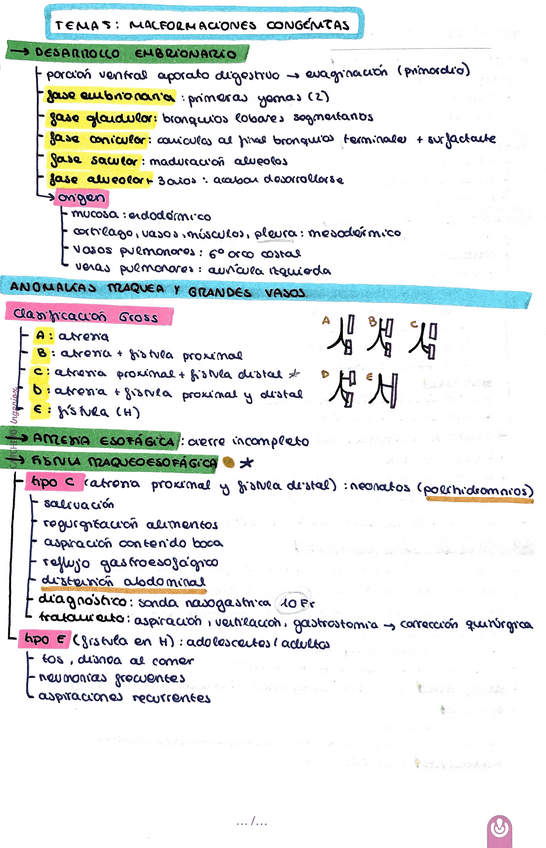 TEMA 5: MALFORMACIONES CONGÉNITAS
→ DESARROLLO EMBRIONARIO
porción ventral aparato digestivo → evaginación (primordio)
fase embrionaria: primeras yemas (2)
fase glandular: bronquios lobares segmentarios
fase canicular: canículos al final bronquios terminales + surfactante
fase sacular: maduración alveolos
fase alveolar: 3 años: acaban desarrollarse
origen
mucosa: endodérmico
cartílago, vasos, músculos, pleura: mesodérmico
vasos pulmonares: 6º arco costal
venas pulmonares: aurícula izquierda
ANOMALÍAS TRAQUEA Y GRANDES VASOS
Clasificación Gross
A: atresia
B: atresia + fístula proximal
C: atresia proximal + fístula distal *
D: atresia + fístula proximal y distal
E: fístula (H)
A B C
D E
→ ATRESIA ESOFÁGICA: cierre incompleto
→ FÍSTULA TRAQUEOESOFÁGICA ★
tipo C (atresia proximal y fístula distal): neonatos (polihidramnios)
salivación
regurgitación alimentos
aspiración contenido boca
reflujo gastroesofágico
distensión abdominal
diagnóstico: sonda nasogástrica 10 Fr
tratamiento: aspiración, ventilación, gastrostomía → corrección quirúrgica
tipo E (fístula en H): adolescentes/adultos
tos, disnea al comer
neumonías frecuentes
aspiraciones recurrentes
... /...